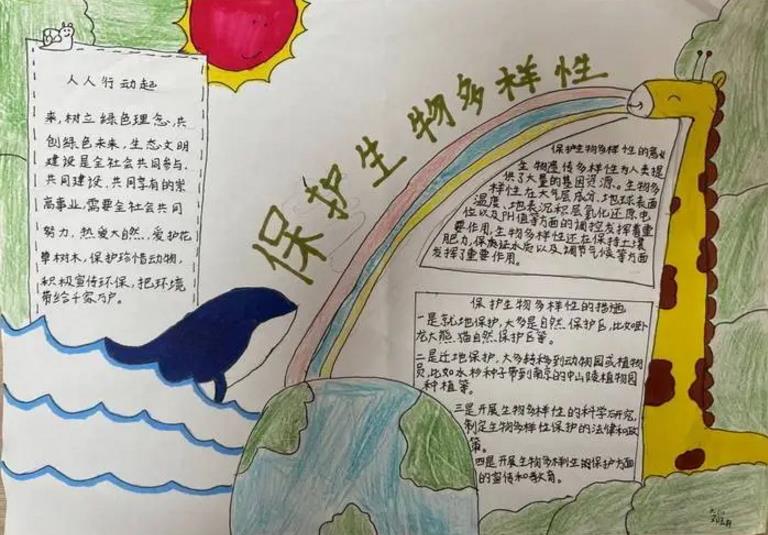 保护生物多样性
人人行动起
来,树立绿色理念,共
创绿色未来,生态文明
建设是全社会共同参与,
共同建设,共同享有的崇
高事业,需要全社会共同
努力,热爱大自然,爱护花
草树木,保护珍惜动物,
积极宣传环保,把环境
带给千家万户。
保护生物多样性的意义
生物遗传多样性为人类提
供了大量的基因资源。生物多
样性在大气层成分、地球表面
温度、地表沉积层氧化还原电
位以及PH值等方面的调控发挥着重
要作用,生物多样性还在保持土壤
肥力,保质以及调节气候等方面
发挥了重要作用。
保护生物多样性的措施
一是就地保护,大多是自然保护区,比如卧
龙大熊猫自然保护区等。
二是迁地保护,大多转移到动物园或植物
园,比如水杉种子带到南京的中山陵植物园
种植等。
三是开展生物多样性的科学研究,
制定生物多样性保护的法律和政
策。
四是开展生物多样性的保护方面
的宣传和教育。